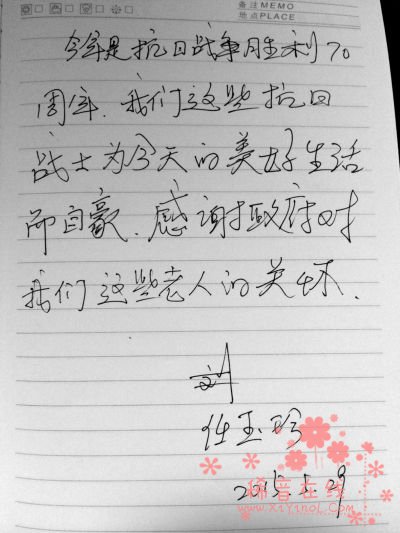 备注MEMO
地点PLACE
今年是抗日战争胜利70
周年.我们这些抗日
战士为今天的美好生活
而自豪.感谢政府对
我们这些老人的关怀.
刘
任玉珍
2015.5.29
稀音在线
www.XiYinOL.Com